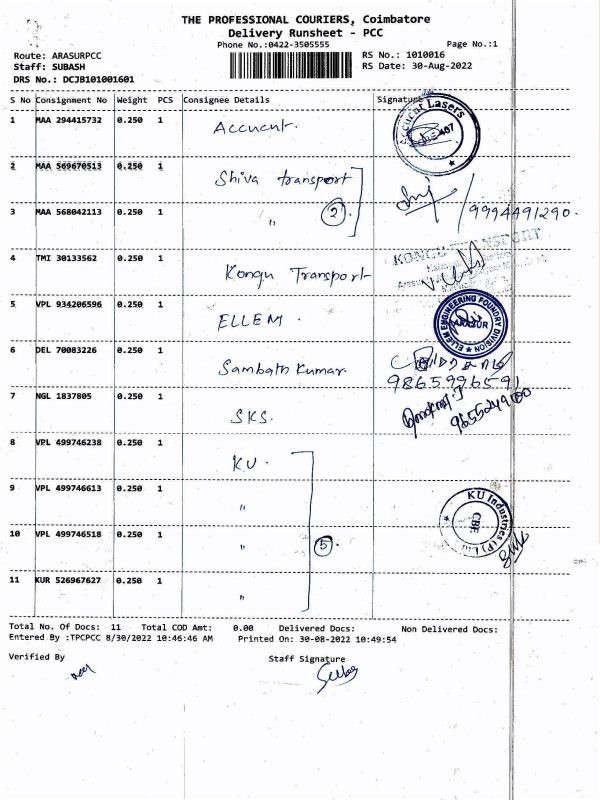 THE PROFESSIONAL COURIERS, Coimbatore
Delivery Runsheet - PCC
Phone No.:0422-3505555 Page No.:1
Route: ARASURPCC RS No.: 1010016
Staff: SUBASH RS Date: 30-Aug-2022
DRS No.: DCJB101001601
S No Consignment No Weight PCS Consignee Details Signature
1 MAA 294415732 0.250 1 Accucut. Accucut Lasers
2 MAA 569670513 0.250 1 Shiva transport
3 MAA 568042113 0.250 1 " 2 9994491290.
4 TMI 30133562 0.250 1 Kongu Transport KONGU TRANSPORT
5 VPL 934206596 0.250 1 ELLEM. ELLEM ENGINEERING FOUNDRY DIVISION ARASUR
6 DEL 70083226 0.250 1 Sambath Kumar 9865996591
7 NGL 1837805 0.250 1 SKS.
8 VPL 499746238 0.250 1 KU.
9 VPL 499746613 0.250 1 " KU Industries (P) Ltd CBE
10 VPL 499746518 0.250 1 " 5.
11 KUR 526967627 0.250 1 "
Total No. Of Docs: 11 Total COD Amt: 0.00 Delivered Docs: Non Delivered Docs:
Entered By :TPCPCC 8/30/2022 10:46:46 AM Printed On: 30-08-2022 10:49:54
Verified By Staff Signature